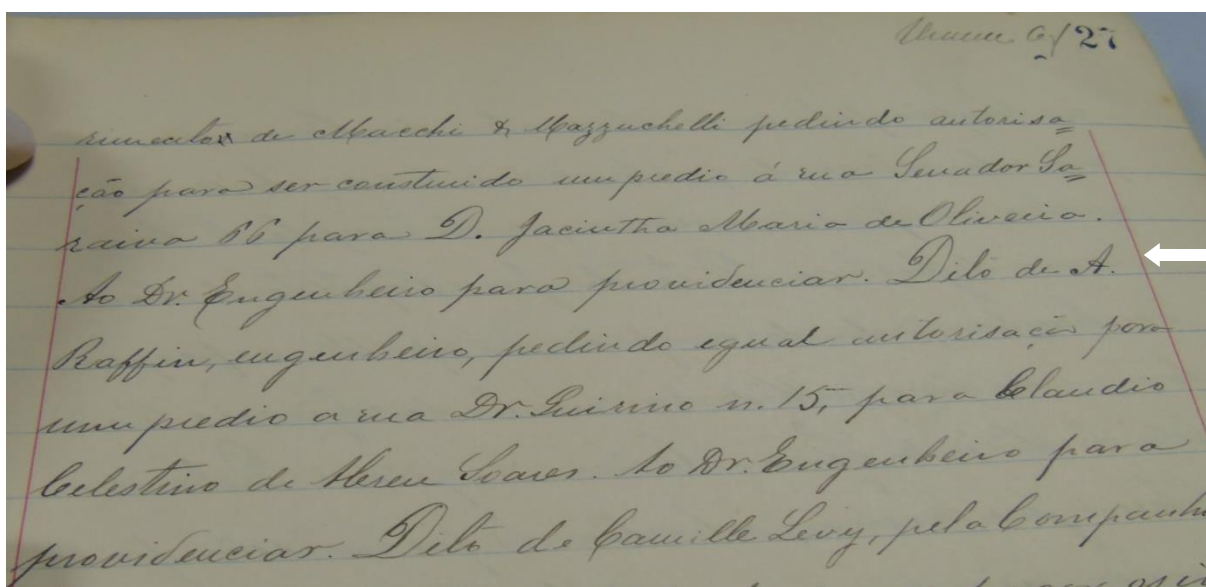 27
rimento de Macchi & Mazzuchelli pedindo autorisa=
ção para ser construido um predio á rua Senador Sa=
raiva 66 para D. Jacintha Maria de Oliveira.
Ao Dr. Engenheiro para providenciar. Dito de A.
Raffin, engenheiro, pedindo egual autorisação para
um predio a rua Dr. Quirino n. 15, para Claudio
Celestino de Abreu Soares. Ao Dr. Engenheiro para
providenciar. Dito de Camille Levy, pela Companhi